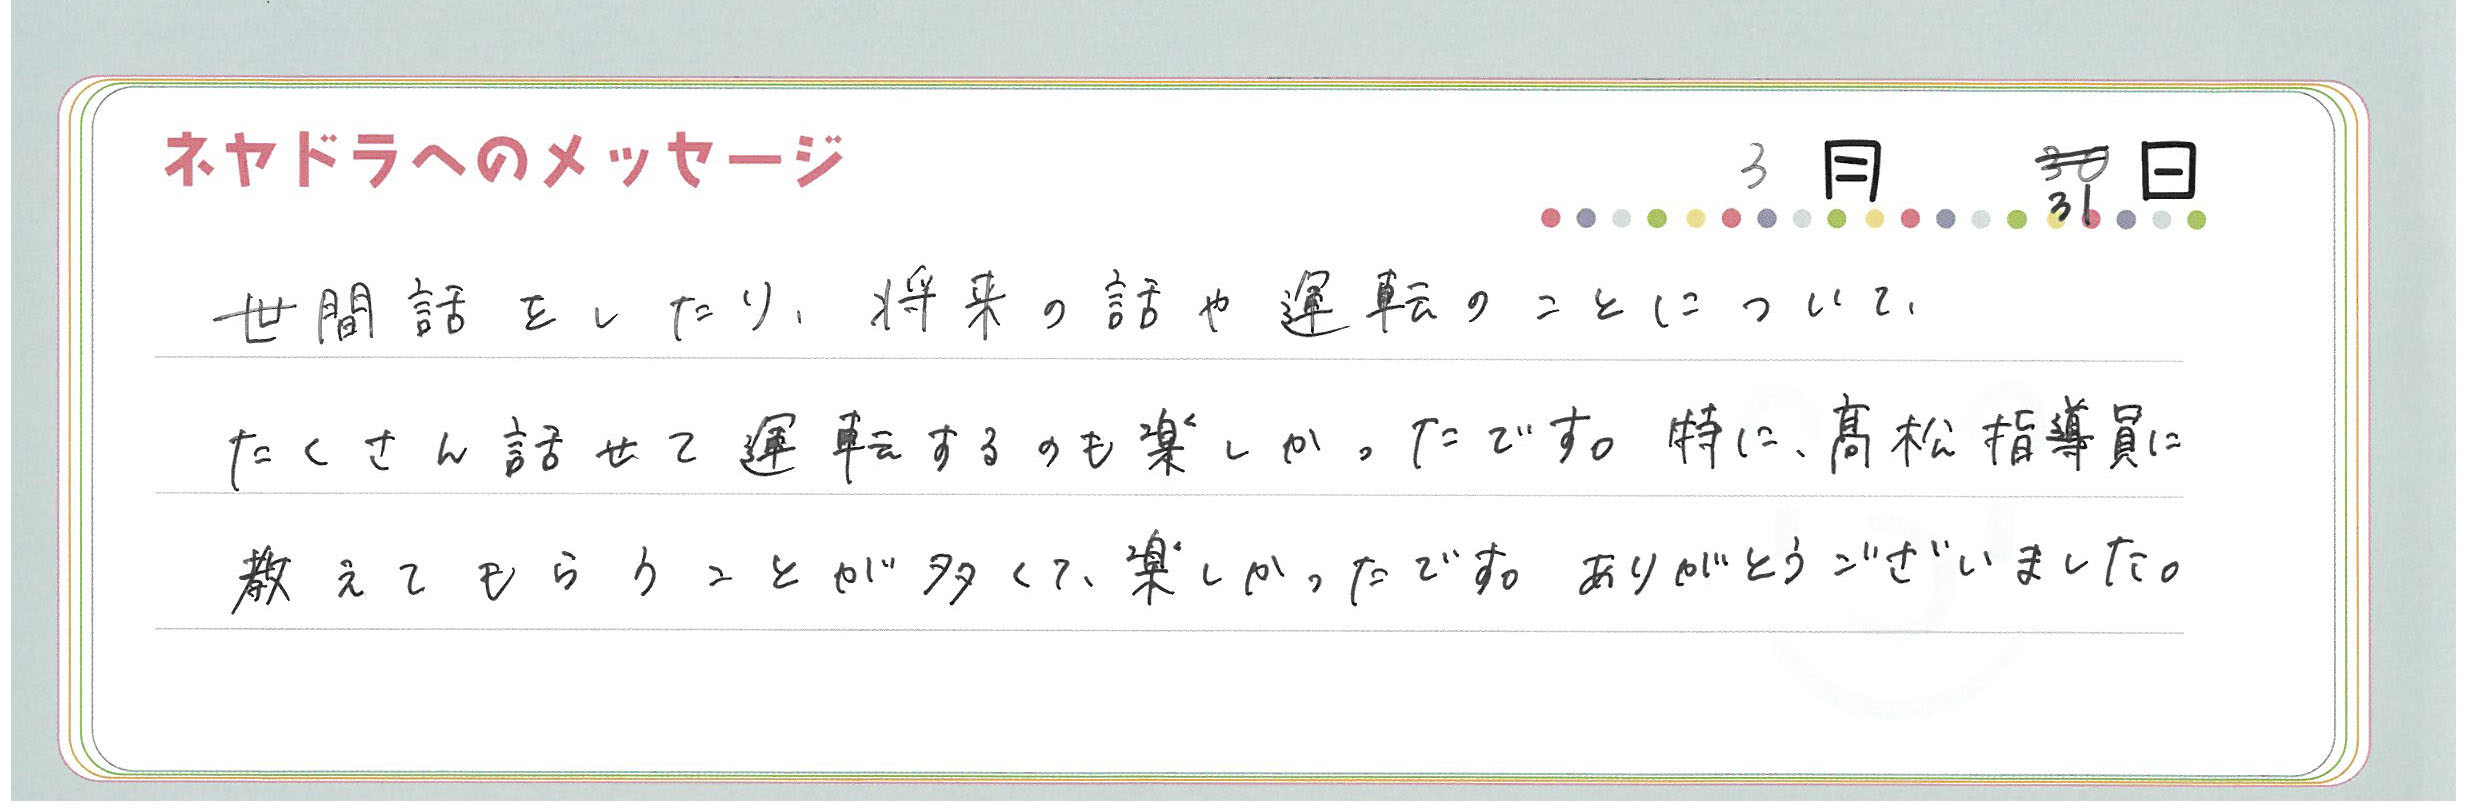 ネヤドラへのメッセージ 3月 30日
31
世間話をしたり、将来の話や運転のことについて、
たくさん話せて運転するのも楽しかったです。特に、髙松指導員に
教えてもらうことが多くて、楽しかったです。ありがとうございました。